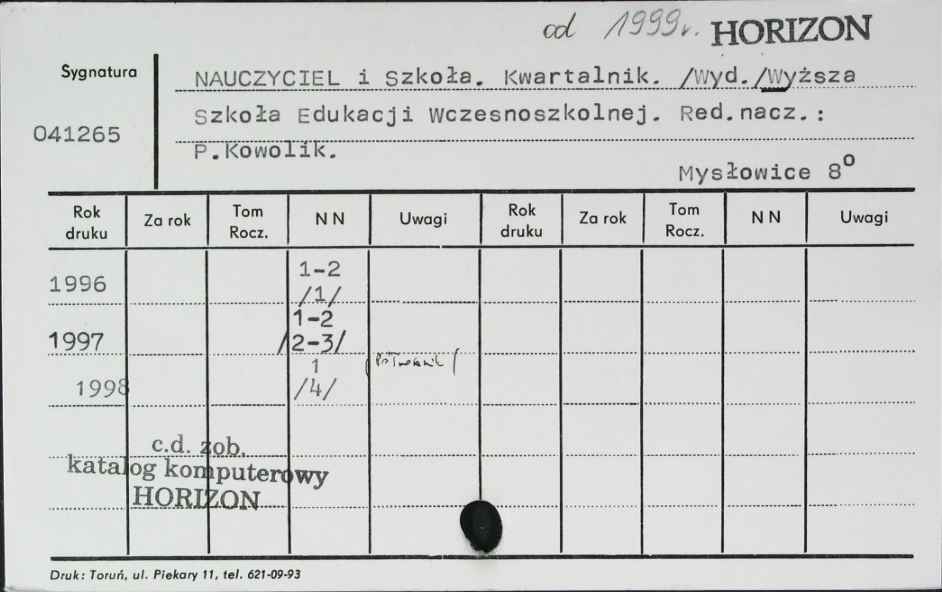 od 1999r. HORIZON
Sygnatura
041265
NAUCZYCIEL i Szkoła. Kwartalnik. /Wyd./Wyższa
Szkoła Edukacji Wczesnoszkolnej. Red.nacz.:
P.Kowolik.
Mysłowice 8°
Rok druku Za rok Tom Rocz. N N Uwagi Rok druku Za rok Tom Rocz. N N Uwagi
1996 1-2
/1/
1-2
1997 /2-3/
1
1998 /4/
c.d. zob.
katalog komputerowy
HORIZON
Druk: Toruń, ul. Piekary 11, tel. 621-09-93